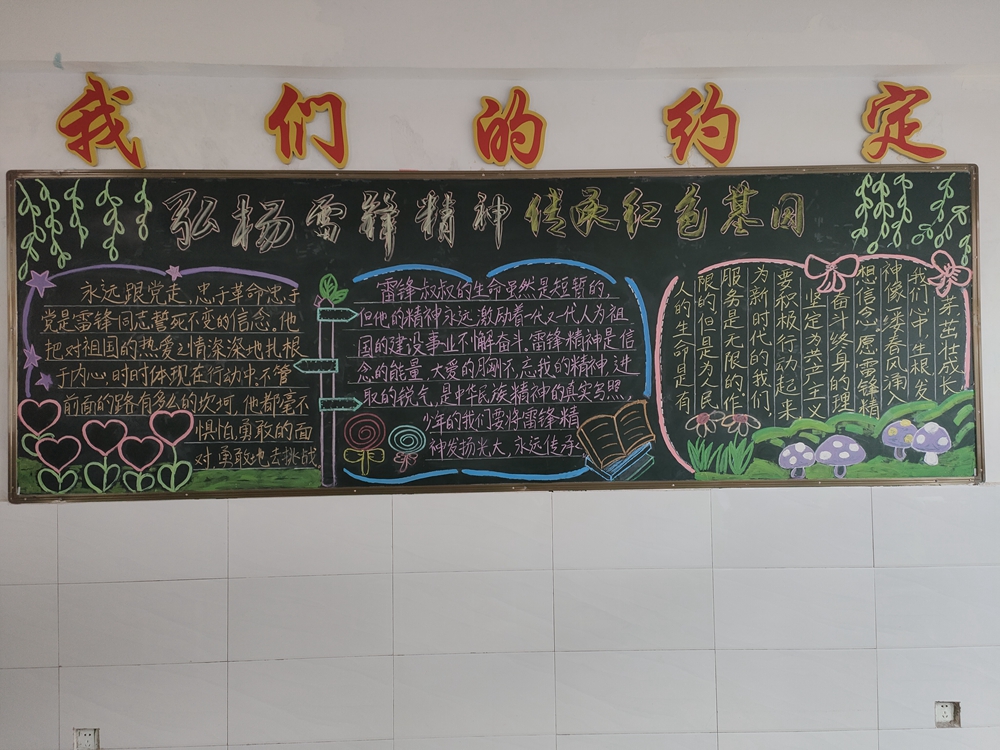 我们的约定
弘杨雷锋精神 传承红色基因
永远跟党走,忠于革命忠于
党是雷锋同志誓死不变的信念。他
把对祖国的热爱之情深深地扎根
于内心,时时体现在行动中,不管
前面的路有多么的坎坷,他都毫不
惧怕,勇敢的面
对勇敢地去挑战
雷锋叔叔的生命虽然是短暂的,
但他的精神永远激励着一代又一代人为祖
国的建设事业不解奋斗,雷锋精神是信
念的能量,大爱的胸怀,忘我的精神,进
取的锐气,是中华民族精神的真实写照,
少年的我们要将雷锋精
神发扬光大,永远传承
人的生命是有
限的但是为人民
服务是无限的作
为新时代的我们
要积极行动起来
坚定为共产主义
奋斗终身的理
想信念愿雷锋精
神像缕缕春风涌入
我们心中生根发
芽茁壮成长